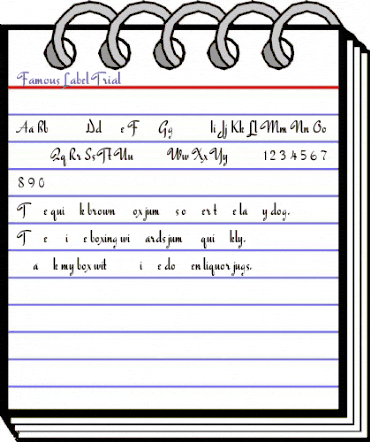 Famous Label Trial
Aa Bb Dd e F Gg Ii Jj Kk Ll Mm Nn Oo
Qq Rr Ss Tt Uu Ww Xx Yy 1 2 3 4 5 6 7
8 9 0
T e qui k brown ox jum s o er t e la y dog.
T e i e boxing wi ards jum qui kly.
a k my box wit i e do en liquor jugs.